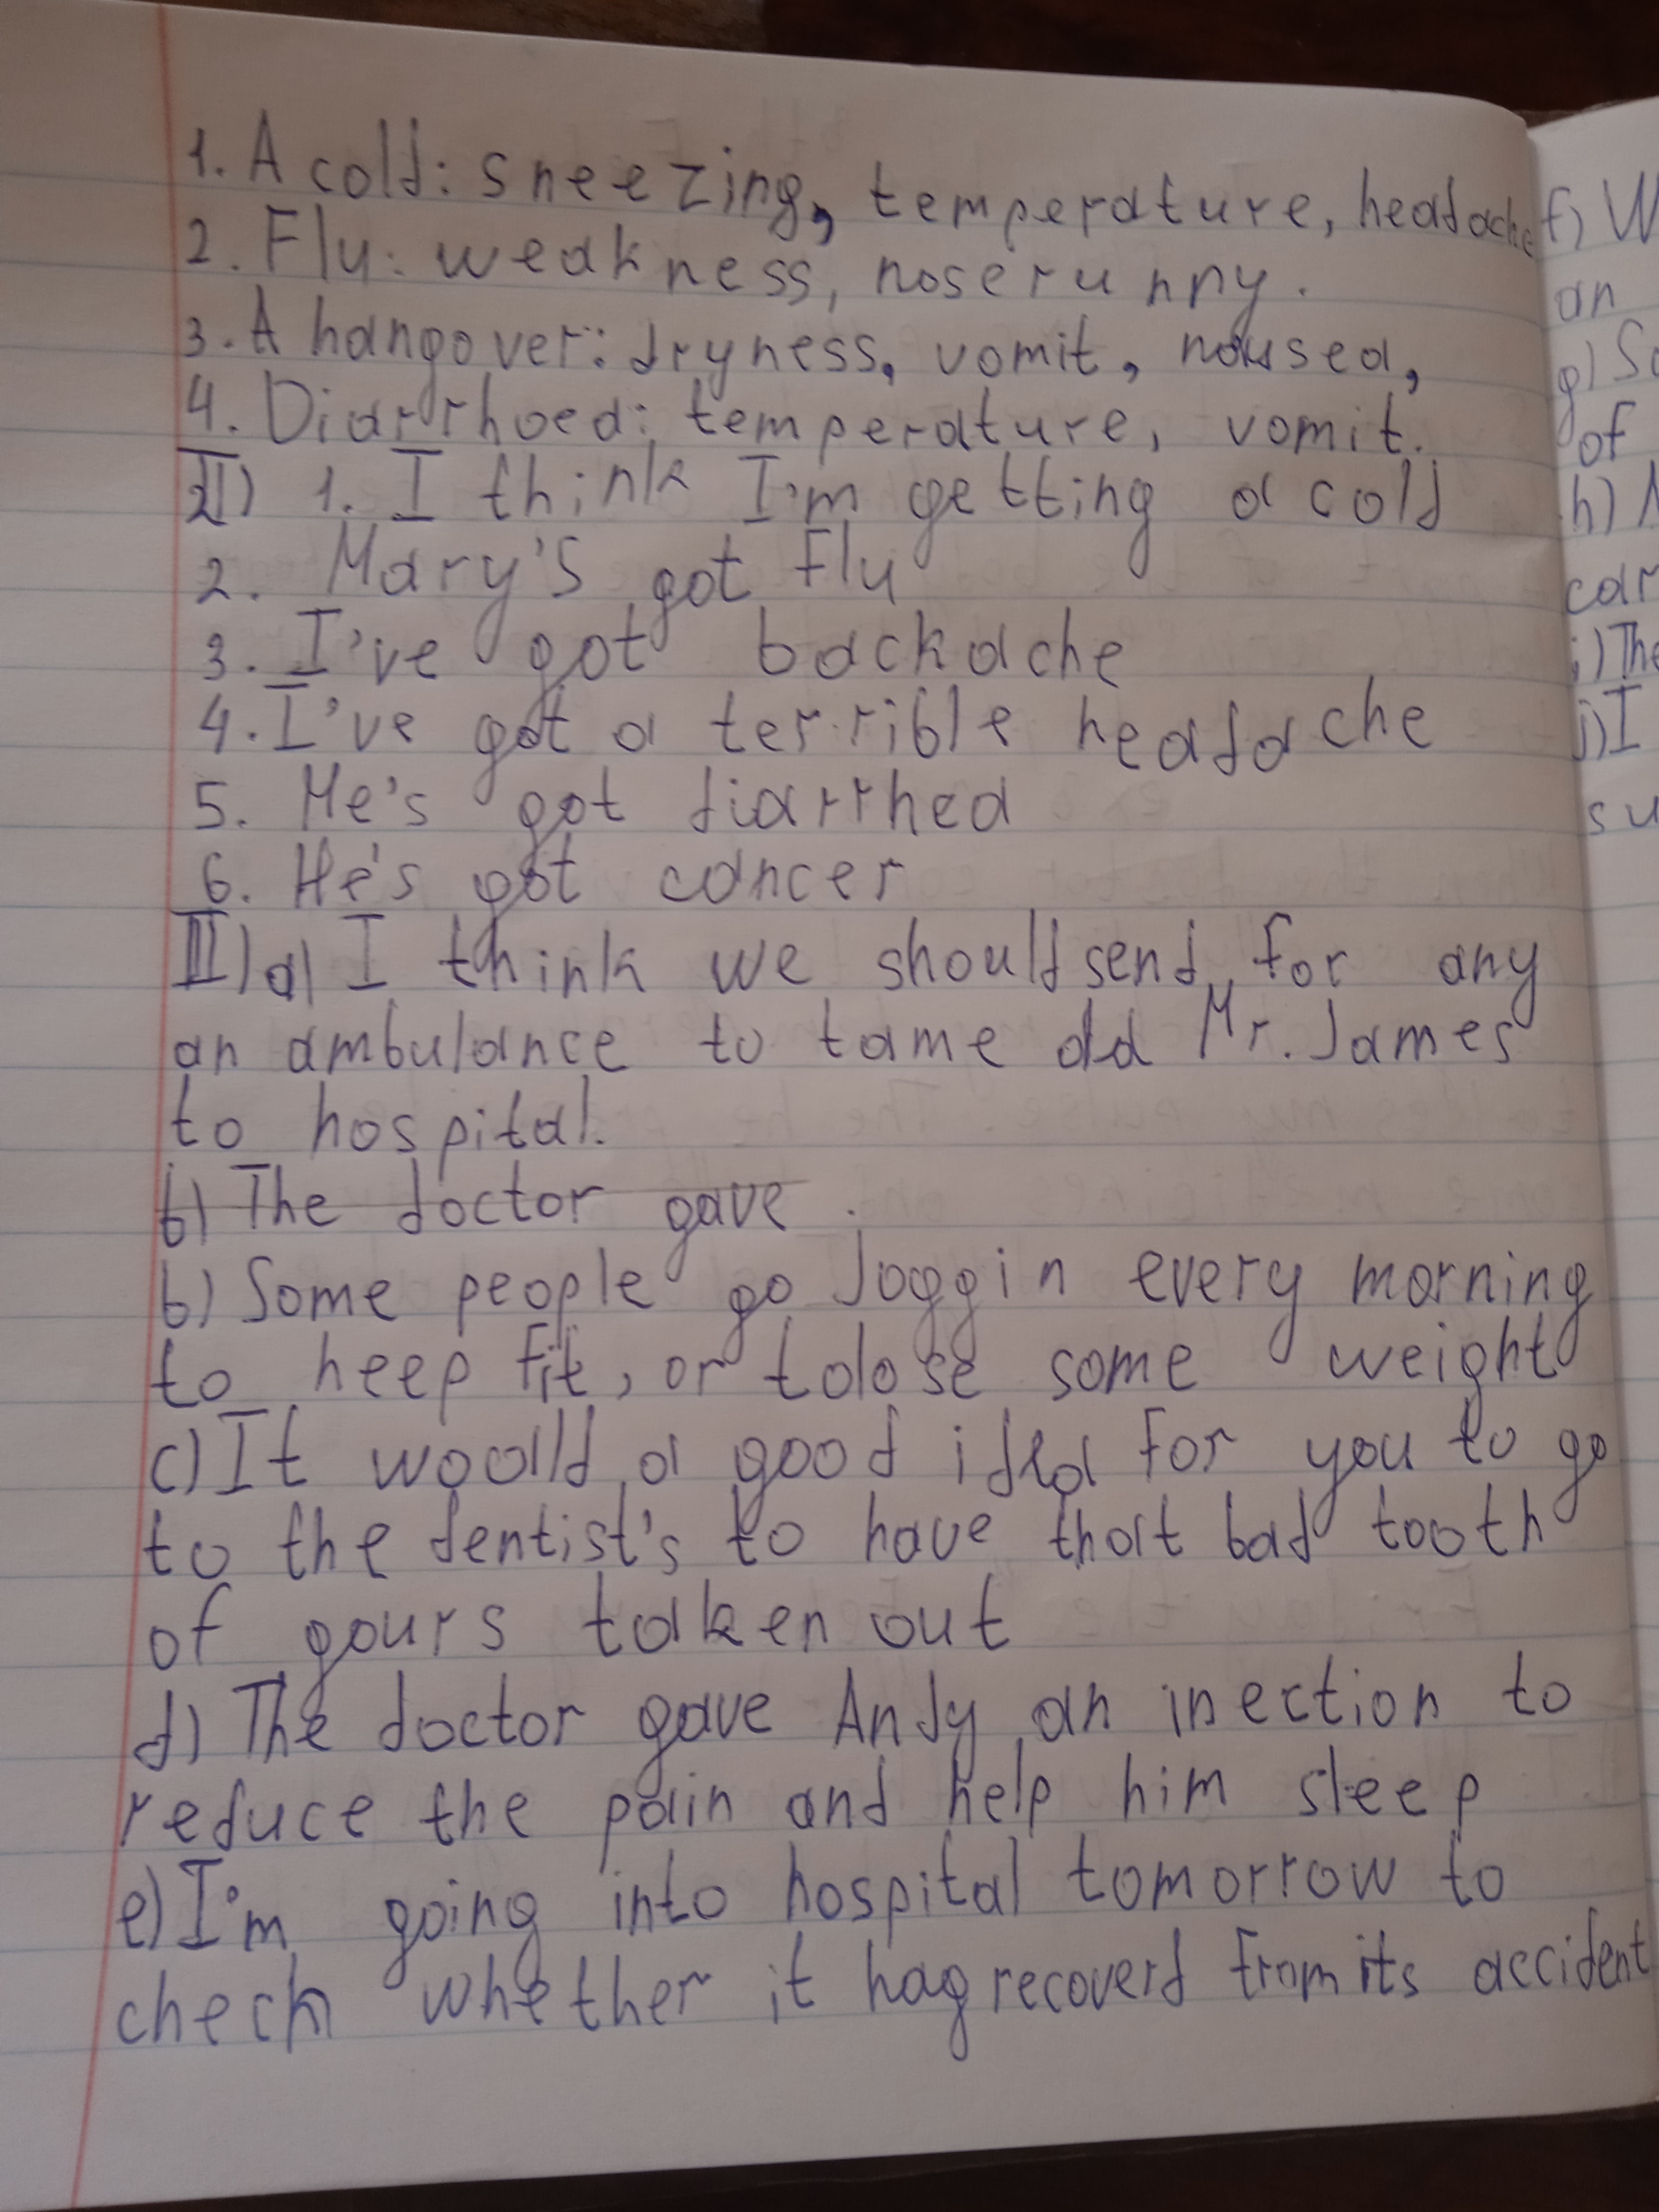 1. A cold: sneezing, temperature, headache
2. Fly: weakness, noserunny.
3. A hangover: dryness, vomit, nousea,
4. Diarrhoea: temperature, vomit.
II) 1. I think I'm getting a cold
2. Mary's got flu
3. I've got backache
4. I've got a terrible headache
5. He's got diarrhea
6. He's got cancer
III) a) I think we should send for any
an ambulance to tame old Mr. James
to hospital.
b) The doctor gave.
b) Some people go Joggin every morning
to keep fit, or to lose some weight
c) It woolld a good idea for you to go
to the dentist's to have that bad tooth
of yours taken out
d) The doctor gave Andy an inection to
reduce the pain and help him sleep
e) I'm going into hospital tomorrow to
check whether it hag recoverd from its accident
f) W
an
g) So
of
h)
car
i) The
j) I
su